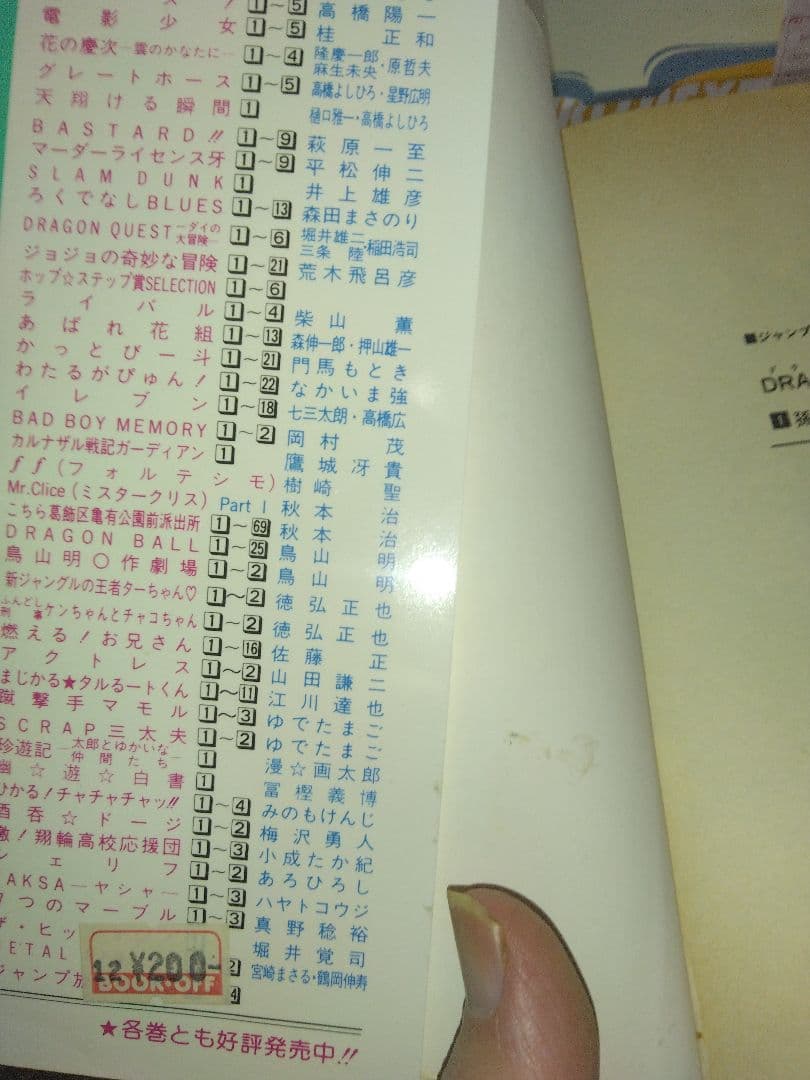 1～5 高橋陽一
電影少女 1～5 桂正和
花の慶次―雲のかなたに― 1～4 隆慶一郎・原哲夫 麻生未央
グレートホース 1～5 高橋よしひろ・星野広明
天翔ける瞬間 1 樋口雅一・高橋よしひろ
BASTARD!! 1～9 萩原一至
マーダーライセンス牙 1～9 平松伸二
SLAM DUNK 1 井上雄彦
ろくでなしBLUES 1～13 森田まさのり
DRAGON QUEST―ダイの大冒険― 1～6 堀井雄二・稲田浩司 三条陸
ジョジョの奇妙な冒険 1～21 荒木飛呂彦
ホップ☆ステップ賞SELECTION 1～6
ライバル 1～4 柴山薫
あばれ花組 1～13 森伸一郎・押山雄一
かっとび一斗 1～21 門馬もとき
わたるがぴゅん! 1～22 なかいま強
イレブン 1～18 七三太朗・高橋広
BAD BOY MEMORY 1～2 岡村茂
カルナザル戦記ガーディアン 1 鷹城冴貴
ff(フォルテシモ) 樹崎聖
Mr.Clice(ミスタークリス) Part 1 秋本治
こちら葛飾区亀有公園前派出所 1～69 秋本治
DRAGON BALL 1～25 鳥山明
鳥山明○作劇場 1～2 鳥山明
新ジャングルの王者ターちゃん♡ 1～2 徳弘正也
ふんどし刑事ケンちゃんとチャコちゃん 1～2 徳弘正也
燃える!お兄さん 1～16 佐藤正
アクトレス 1～2 山田謙二
まじかる★タルるートくん 1～11 江川達也
蹴撃手マモル 1～3 ゆでたまご
SCRAP三太夫 1～2 ゆでたまご
珍遊記―太郎とゆかいな仲間たち― 1 漫☆画太郎
幽☆遊☆白書 1 冨樫義博
ひかる!チャチャチャッ!! 1～4 みのもけんじ
酒呑☆ドージ 1～2 梅沢勇人
激!翔輪高校応援団 1～3 小成たか紀
シェリフ 1～2 あろひろし
AKSA―ヤシャ― 1～3 ハヤトコウジ
7つのマーブル 1～3 真野稔裕
ザ・ヒッ 堀井覚司
METAL 2 宮崎まさる・鶴岡伸寿
ジャンプ放 4
12 ¥200-
BOOK・OFF
★各巻とも好評発売中!!
■ジャンプ
DRA
1 孫